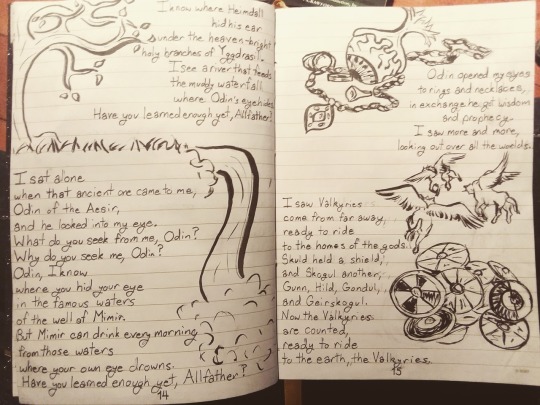 I know where Heimdall
hid his ear
under the heaven-bright
holy branches of Yggdrasil.
I see a river that feeds
the muddy waterfall
where Odin's eye hides.
Have you learned enough yet, Allfather?
I sat alone
when that ancient one came to me,
Odin of the Aesir,
and he looked into my eye.
What do you seek from me, Odin?
Why do you seek me, Odin?
Odin, I know
where you hid your eye
in the famous waters
of the well of Mimir.
But Mimir can drink every morning
from those waters
where your own eye drowns.
Have you learned enough yet, Allfather?
14
Odin opened my eyes
to rings and necklaces,
in exchange he got wisdom
and prophecy.
I saw more and more,
looking out over all the worlds.
I saw Valkyries
come from far away,
ready to ride
to the homes of the gods.
Skuld held a shield,
and Skogul another,
Gunn, Hild, Gondul,
and Geirskogul.
Now the Valkyries
are counted,
ready to ride
to the earth, the Valkyries.
15